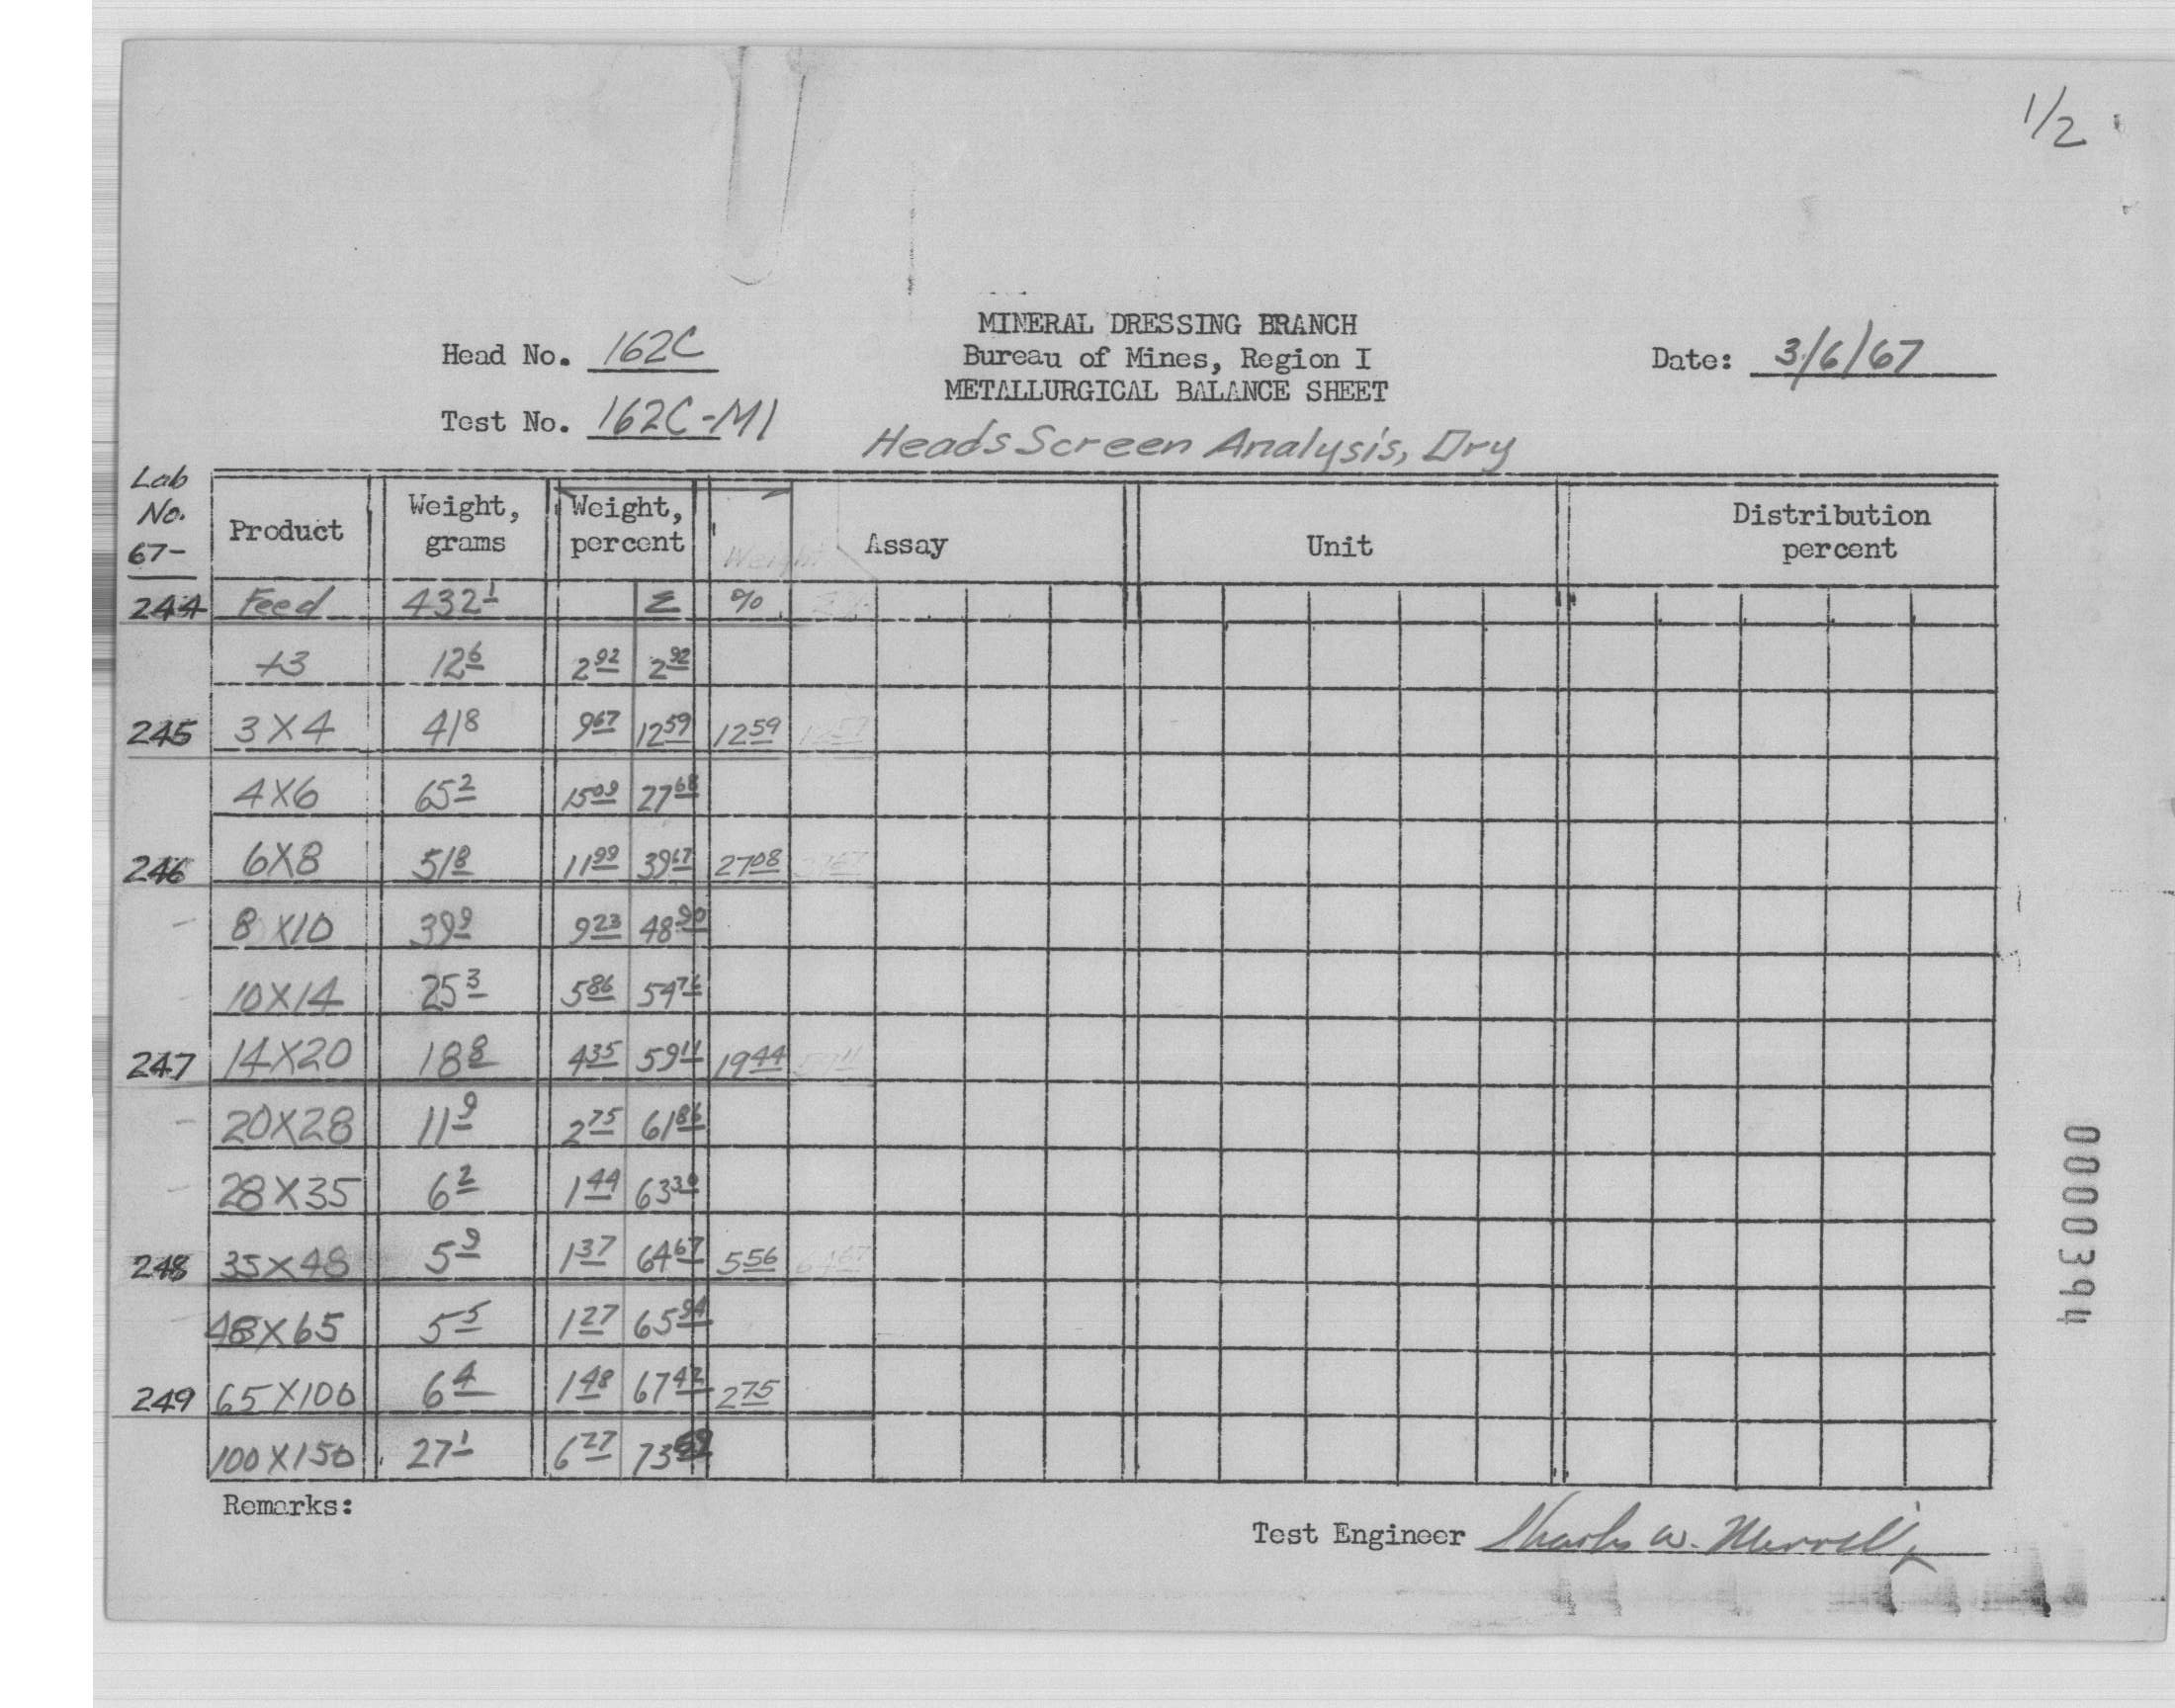 1/2
MINERAL DRESSING BRANCH
Head No. 162C Bureau of Mines, Region I Date: 3/6/67
METALLURGICAL BALANCE SHEET
Test No. 162C-M1
Heads Screen Analysis, Dry
Lab No. 67- Product Weight, grams Weight, percent Weight Assay Unit Distribution percent
244 Feed 432 1 Σ %
+3 12 6 2 92 2 92
245 3X4 41 8 9 67 12 59 12 59 12 59
4X6 65 2 15 09 27 68
246 6X8 51 8 11 99 39 67 27 08 39 67
8X10 39 9 9 23 48 90
10X14 25 3 5 86 54 76
247 14X20 18 8 4 35 59 11 19 44 59 11
20X28 11 9 2 75 61 86
28X35 6 2 1 44 63 30
248 35X48 5 9 1 37 64 67 5 56 64 67
48X65 5 5 1 27 65 94
249 65X100 6 4 1 48 67 42 2 75
100X150 27 1 6 27 73 69
Remarks:
Test Engineer Charles W. Merrell
0000394